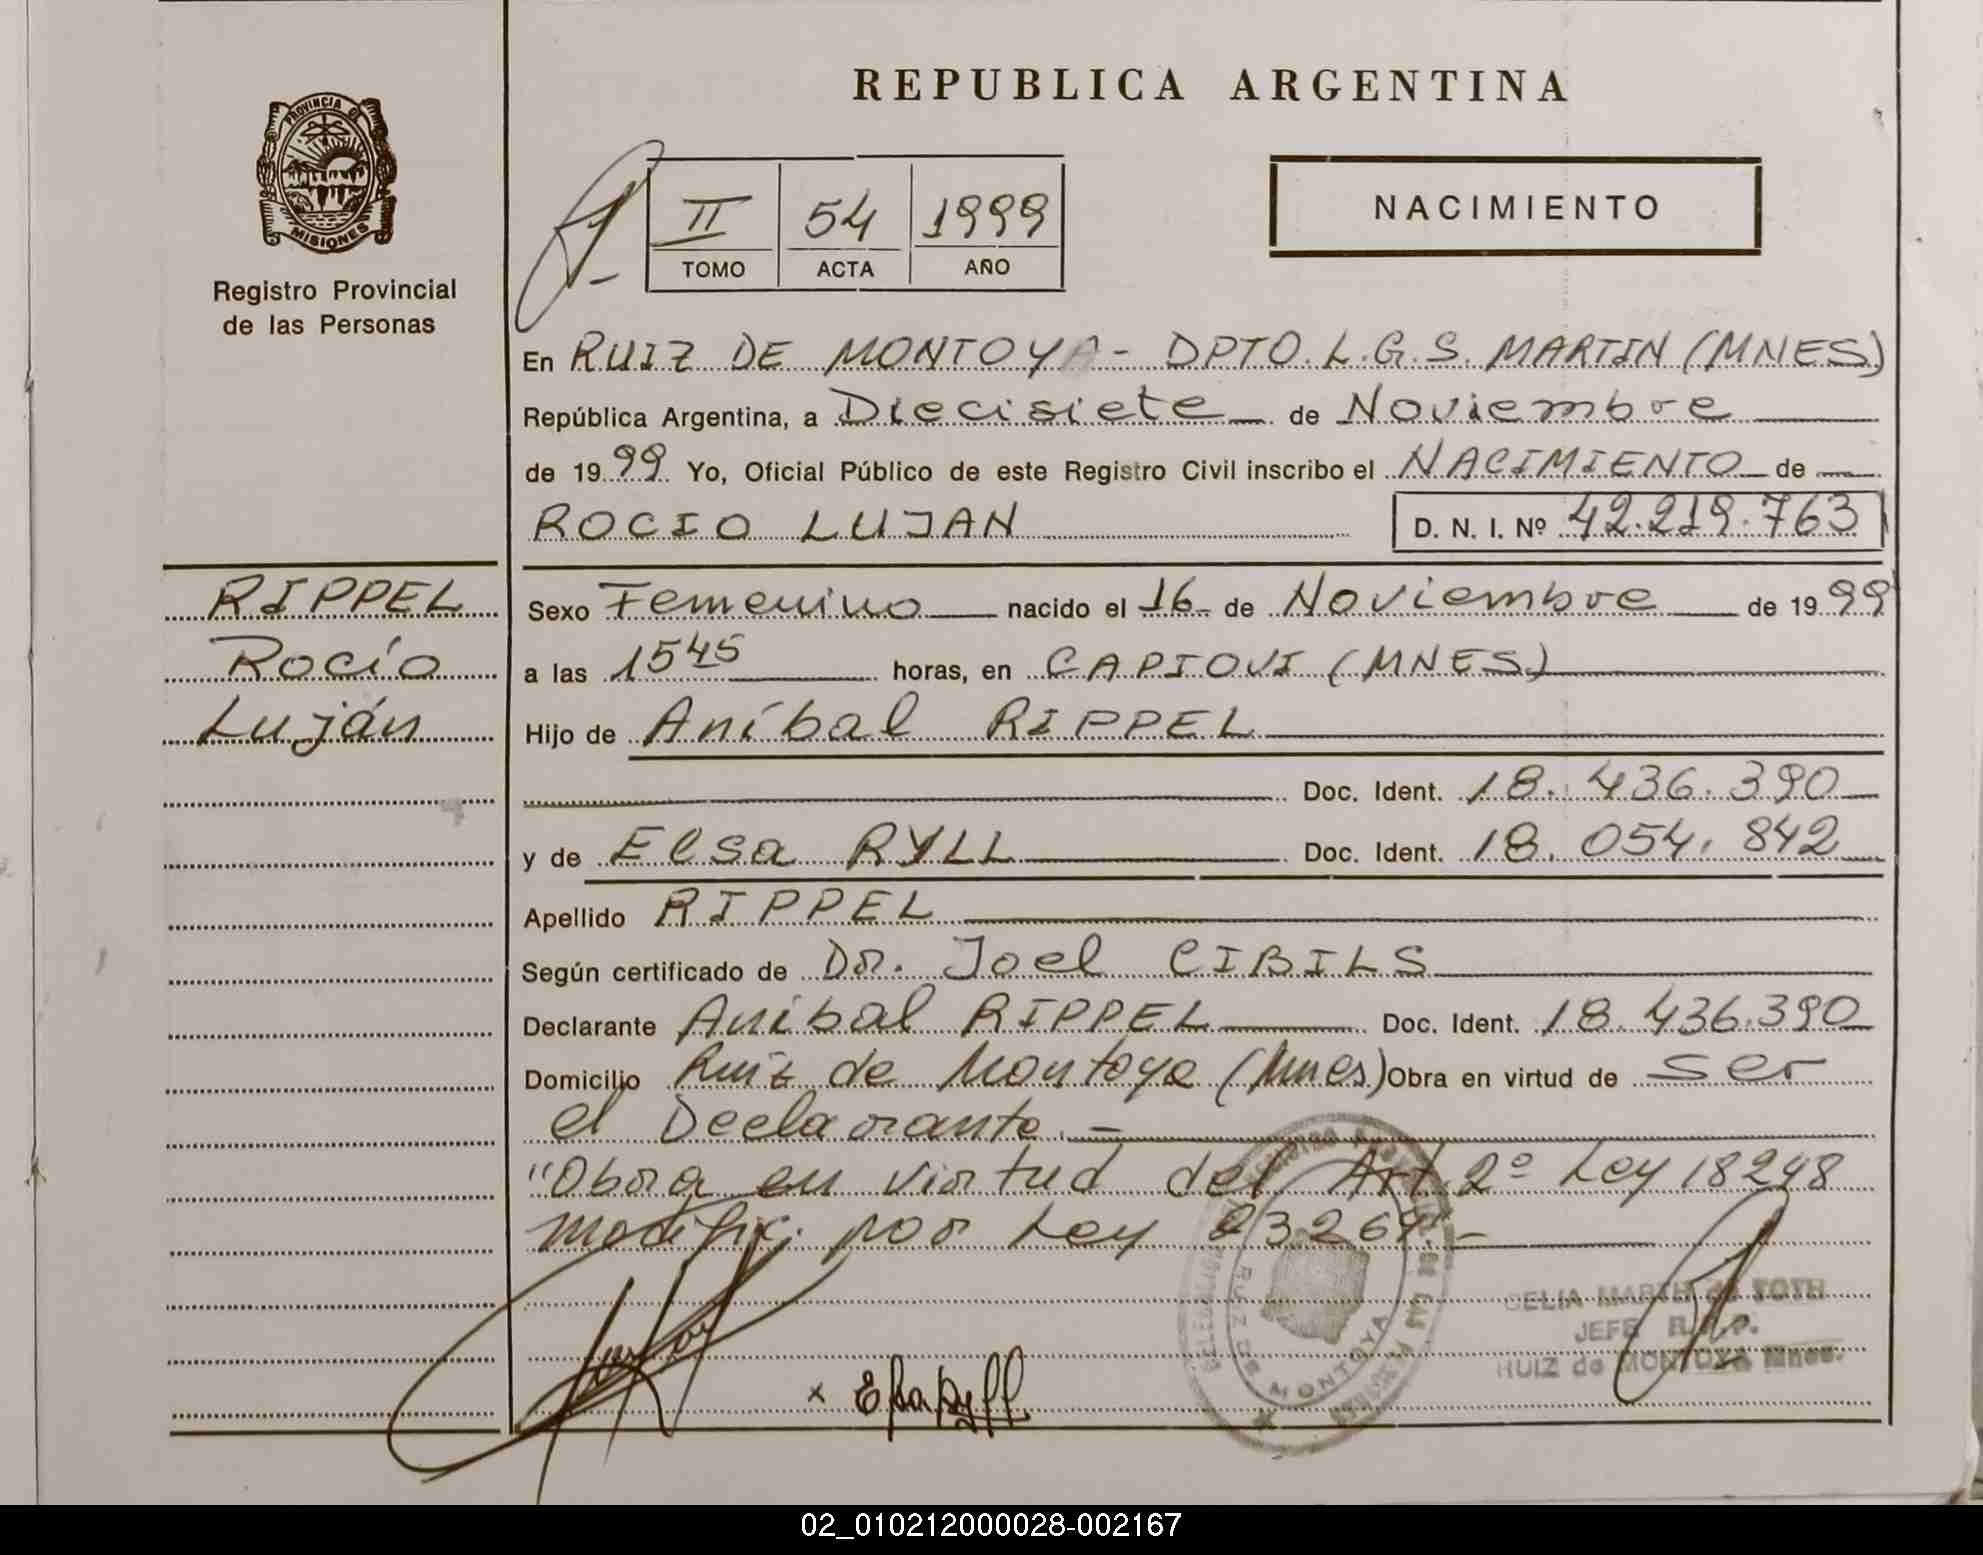 REPUBLICA ARGENTINA
PROVINCIA DE
MISIONES
Registro Provincial
de las Personas
II 54 1999
TOMO ACTA AÑO
NACIMIENTO
En RUIZ DE MONTOYA - DPTO. L.G.S. MARTIN (MNES)
República Argentina, a Diecisiete de Noviembre
de 1999 Yo, Oficial Público de este Registro Civil inscribo el NACIMIENTO de
ROCIO LUJAN D. N. I. Nº 42.219.763
RIPPEL
Rocío
Luján
Sexo Femenino nacido el 16 de Noviembre de 1999
a las 1545 horas, en CAPIOVI (MNES)
Hijo de Aníbal RIPPEL
Doc. Ident. 18.436.390
y de Elsa RYLL Doc. Ident. 18.054.842
Apellido RIPPEL
Según certificado de Dr. Joel CIBILS
Declarante Aníbal RIPPEL Doc. Ident. 18.436.390
Domicilio Ruiz de Montoya (Mnes) Obra en virtud de ser
el Declarante.-
"Obra en virtud del Art. 2º Ley 18248
modific. por Ley 23264".-
x Elsa Ryll
RUIZ DE MONTOYA
CELIA MARTH de TOTH
JEFE R.P.P.
RUIZ de MONTOYA Mnes.
02_010212000028-002167